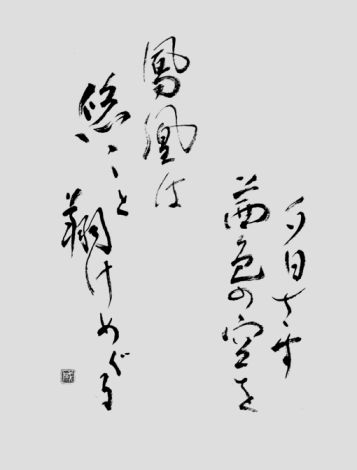 夕日さす
茜色の空を
鳳凰は
悠々と
翔けめぐる